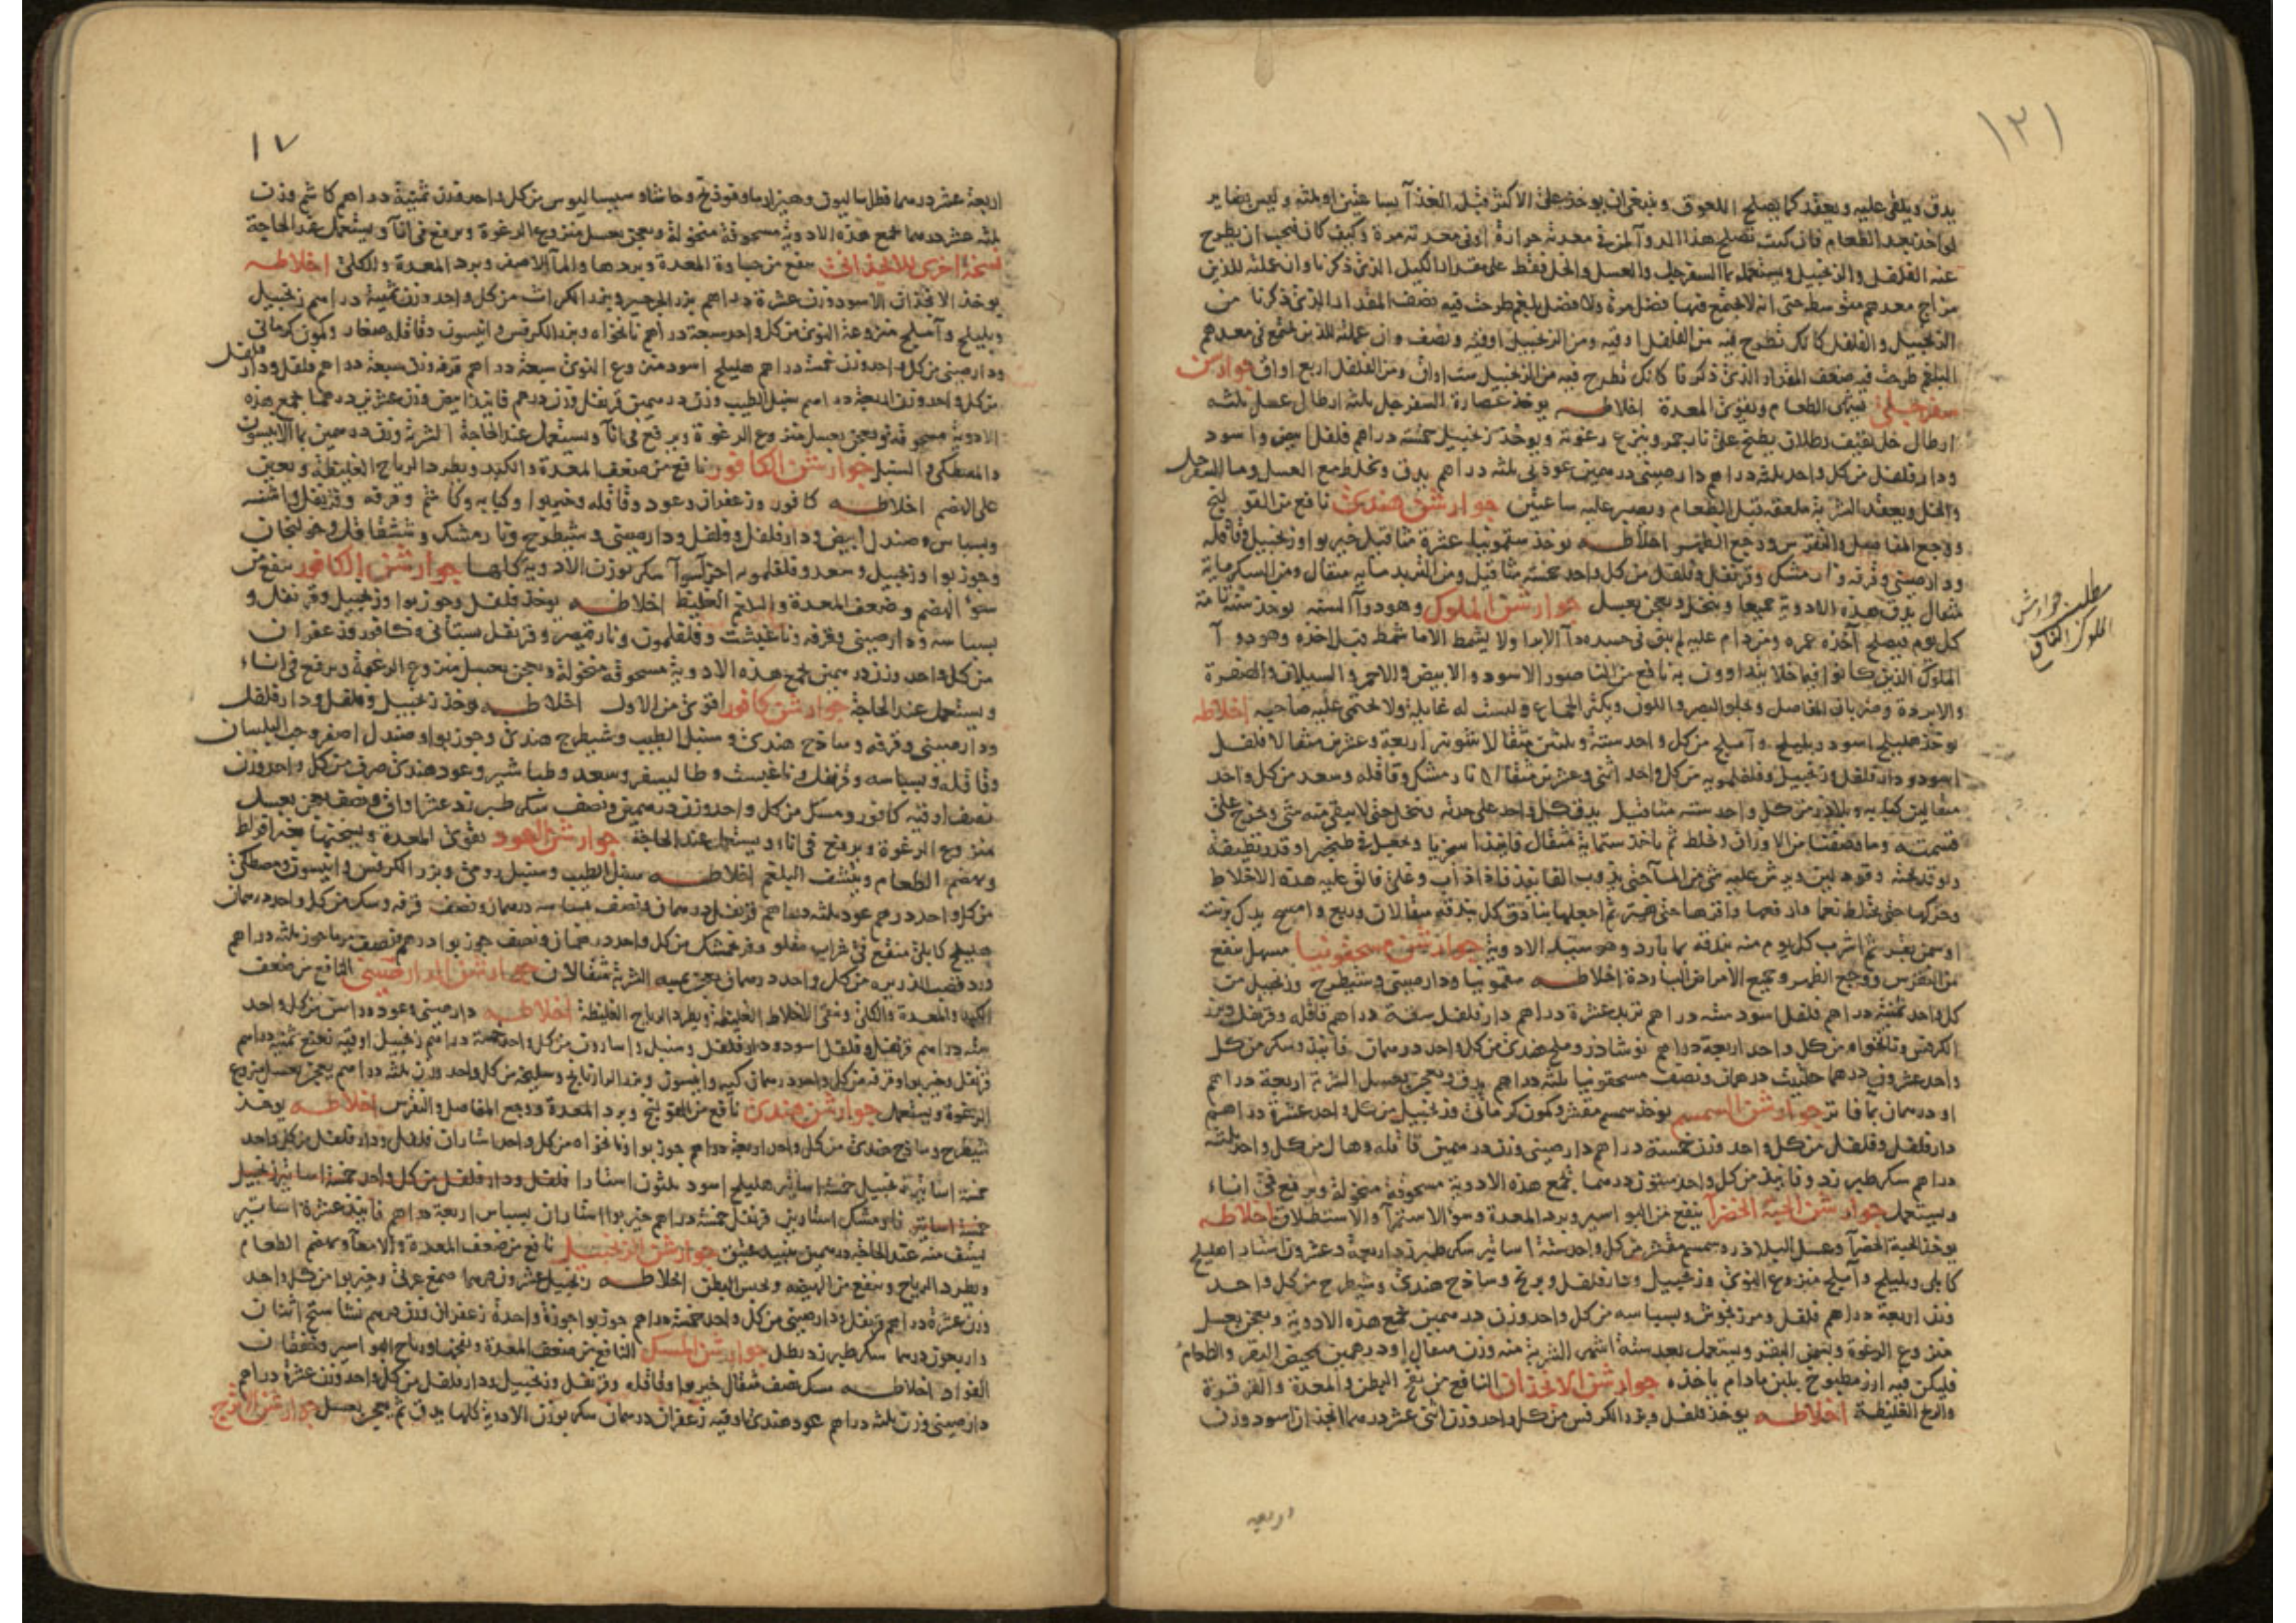 ١٣١
يدق ويلقى عليه ويعقد كما يصلح اللعوق وينبغي ان يوخذ على الاكثر قبل الغذآ بساعتين او بثلثه وليس بضاير
لو اخذ بعد الطعام فان كنت تصلح هذا الدوآ لمن في معدته حرارة او في معدته مرة وكيف كان فيجب ان يطرح
عنه الفلفل والزنجبيل ويستعمله بماء السفرجل والعسل والخل فقط على مقدار الكيل الذى ذكرنا وان عملته للذين
مزاج معدهم متوسط حتى انه لا يجتمع فيها فضل مرة ولا فضل بلغم طرحت فيه نصف المقدار الذى ذكرنا من
الزنجبيل والفلفل كانك تطرح فيه من الفلفل اوقيه ومن الزنجبيل اوقيه ونصف وان عملته للذين يجتمع فى معدهم
البلغم طرحت فيه ضعف المقدار الذى ذكرنا كانك تطرح فيه من الزنجبيل ست اواق ومن الفلفل اربع اواق جوارشن
سفرجلى يشهى الطعام ويقوى المعدة اخلاطـه يوخذ عصارة السفرجل ثلثه ارطال عسل ثلثه
ارطال خل ثقيف رطلان يطبخ على نار جمر وينزع رغوته ويوخذ زنجبيل خمسة دراهم فلفل ابيض واسود
ودارفلفل من كل واحد ثلثه دراهم دارصينى درهمين عود نى ثلثه دراهم يدق ويخلط مع العسل وماء السفرجل
والخل ويعقد الشربة ملعقه قبل الطعام ويصبر عليه ساعتين جوارشن هندى نافع من القولنج
ووجع المفاصيل والنقرس ووجع الظهر اخلاطـه يوخذ سقمونيا عشرة مثاقيل خيربوا وزنجبيل وقاقله
ودارصينى وقرفه ونارمشك وقرنفل وفلفل من كل واحد خمسة مثاقيل ومن التربد مايه مثقال ومن السكر مايه
مثقال يدق هذه الادوية جميعا وينخل ويعجن بعسل جوارشن الملوك وهو دوآ السنه يوخذ سنة تامة
كل يوم فيصلح آخذه عمره ومن دام عليه لم يبق فى جسده دآ الا برا ولا يشمط الا ما شمط قبل اخذه وهو دوآ
الملوك الذين كانوا فيما خلا يتداوون به نافع من الناصور الاسود والابيض والاحمر والسيلان والصفرة
والابردة وضربان المفاصل ويجلو البصر واللون ويكثر الجماع وليست له غايلة ولا يحتمى عليه صاحبه اخلاطه
يوخذ هليلج اسود وبليلج وآملج من كل واحد ستة وثلثين مثقالا شونيز اربعة وعشرين مثقالا فلفل
اسود ودارفلفل وزنجبيل وفلفلمويه من كل واحد اثنى وعشرين مثقالا نارمشك وقاقله وسعد من كل واحد
مثقالين كبابه وبلاذر من كل واحد سته مثاقيل يدق كل واحد على حدته وينخل حتى لا يبقى منه شى ويخرج على
قسمته وما وصفنا من الاوزان ويخلط ثم ياخذ ستمايه مثقال فانيذا سجزيا ويجعل فى طنجير او قدر نظيفة
وتوقد تحته وقود لين ويرش عليه شى من المآ حتى يذوب الفانيذ فاذا ذاب وغلى فالق عليه هذه الاخلاط
وحركها حتى يختلط نعما وارفعها واقرصها حتى ثم اجعلها بنادق كل بندقه مثقالان وربع وامسح يدك بزيت
او سمن بقر ثم اشرب كل يوم منه بندقه بما بارد وهو سيد الادوية جوارشن مسحقونيا مسهل ينفع
من النقرس ووجع الظهر وجميع الامراض الباردة اخلاطـه سقمونيا ودارصينى وشيطرج وزنجبيل من
كل واحد ثمنيه دراهم فلفل اسود سته دراهم تربد عشرة دراهم دارفلفل سته دراهم قاقله وقرنفل وبزر
الكرفس ونانخواه من كل واحد اربعة دراهم نوشاذر وملح هندى من كل واحد درهمان فانيذ وسكر من كل
واحد عشرون درهما حلتيت درهمان ونصف مسحقونيا ثلثه دراهم يدق ويعجن بعسل الشربة اربعة دراهم
او درهمان بما فاتر جوارشن السمسم يوخذ سمسم مقشر وكمون كرمانى وزنجبيل من كل واحد عشرة دراهم
دارفلفل وفلفل من كل واحد وزن خمسة دراهم دارصينى وزن درهمين قاقله وهال من كل واحد ثلثه
دراهم سكر طبرزد وفانيذ من كل واحد ستون درهما يجمع هذه الادوية مسحوقة منخولة ويرفع فى اناء
ويستعمل جوارشن الحبة الخضرآ ينفع من البواسير وبرد المعدة وسوء الاستمرآ والاستطلاق اخلاطه
يوخذ الحبة الخضرآ وعسل البلاذر وسمسم مقشر من كل واحد ستة اساتير سكر طبرزد اربعة وعشرون استار اهليلج
كابلى وبليلج وآملج منزوع النوى وزنجبيل ودارفلفل وبرنج وساذج هندى وشيطرج من كل واحد
وزن اربعة دراهم فلفل ومرزنجوش وبسباسه من كل واحد وزن درهمين يجمع هذه الادوية ويعجن بعسل
منزوع الرغوة وبسمن البقر ويستعمل بعد ستة اشهر الشربة منه وزن مثقال او درهمين بمخيض البقر والطعام
فليكن فيه ارز مطبوخ بلبن مادام ياخذه جوارشن الانجذان النافع من نفخ البطن والمعدة والقرقرة
والريح الغليظة اخلاطـه يوخذ فلفل وبزر الكرفس من كل واحد وزن اثنى عشر درهما انجذان اسود وزن
مطلب جوارش
الملوك النافع
اربعه
١٧
اربعة عشر درهما فطراساليون وفوذنج وحاشا وسيساليوس من كل واحد وزن ثمنية دراهم كاشم وزن
ثلثه عشر درهما يجمع هذه الادوية مسحوقة منخولة ويعجن بعسل منزوع الرغوة ويرفع فى انآ ويستعمل عند الحاجة
نسخة اخرى للانجذانى ينفع من جساوة المعدة وبردها والمآ الاصفر وبرد المعدة والكلى اخلاطـه
يوخذ الانجذان الاسود وزن عشرة دراهم بزر الجرجير وبزر الكراث من كل واحد وزن ثمنية دراهم زنجبيل
وبليلج وآملج منزوعة النوى من كل واحد سبعة دراهم نانخواه وبزر الكرفس وانيسون وقاقله صغار وكمون كرمانى
ودارصينى من كل واحد وزن خمسة دراهم هليلج اسود منزوع النوى سبعة دراهم قرفه وزن سبعة دراهم فلفل ودارفلفل
من كل واحد وزن اربعة دراهم سنبل الطيب وزن درهمين قرنفل وزن درهم فانيذ ابيض وزن عشرين درهما يجمع هذه
الادوية مسحوقه ويعجن بعسل منزوع الرغوة ويرفع فى انآ ويستعمل عند الحاجة الشربة وزن درهمين بمآ الانيسون
والمصطكى والسنبل جوارشن الكافور نافع من ضعف المعدة والكبد ويطرد الرياح الغليظة ويعين
على الهضم اخلاطـه كافور وزعفران وعود وقاقله وخيربوا وكبابه وكاشم وقرفه وقرنفل واشنه
وبسباس وصندل ابيض ودارفلفل وفلفل ودارصينى وشيطرج ونارمشك وششقاقل وخولنجان
وجوزبوا وزنجبيل وسعد وفلفلمويه اجزآ سوآ سكر بوزن الادويه كلها جوارشن الكافور ينفع من
سوء الهضم وضعف المعدة والبلاغم الغليظ اخلاطـه يوخذ فلفل وجوزبوا وزنجبيل وقرنفل و
بسباسه ودارصينى وقرفه وناغيشت وفلفلمون ونارقيصر وقرنفل بستانى وكافور وزعفران
من كل واحد وزن درهمين يجمع هذه الادوية مسحوقه منخولة ويعجن بعسل منزوع الرغوة ويرفع فى اناء
ويستعمل عند الحاجة جوارشن كافور اقوى من الاول اخلاطـه يوخذ زنجبيل وفلفل ودارفلفل
ودارصينى وقرفه وساذج هندى وسنبل الطيب وشيطرج هندى وجوزبوا وصندل اصفر وحب البلسان
وقاقله وبسباسه وقرنفل وناغيست وطاليسفر وسعد وطباشير وعود هندى صرف من كل واحد وزن
نصف اوقيه كافور ومسك من كل واحد وزن درهمين ونصف سكر طبرزد عشر اواق ونصف يعجن بعسل
منزوع الرغوة ويرفع فى اناء ويستعمل عند الحاجة جوارشن العود يقوى المعدة ويسخنها
ويهضم الطعام وينشف البلغم اخلاطـه سنبل الطيب وسنبل رومى وبزر الكرفس وانيسون ومصطكى
من كل واحد درهم عود ثلثه دراهم قرنفل درهمان ونصف بسباسه درهمان ونصف قرفه وسك من كل واحد درهمان
هليلج كابلى منقع فى شراب مقلو وفرنجمشك من كل واحد درهمان ونصف جوزبوا درهم ونصف ثلثه دراهم
ورد قصب الذريره من كل واحد درهمان يعجن بميبه الشربة مثقالان جوارشن الدارصينى النافع من ضعف
الكبد والمعدة والكلى وينقى الاخلاط الغليظة ويطرد الرياح الغليظة اخلاطـه دارصينى وعود وراسن من كل واحد
سته دراهم قرنفل وفلفل اسود ودارفلفل وسنبل واسارون من كل واحد خمسة دراهم زنجبيل اوقيه ثمنيه دراهم
قرنفل وخيربوا وقرفه من كل واحد درهمان وانيسون وبزر الرازيانج وسليخه من كل واحد وزن ثلثه دراهم يعجن بعسل منزوع
الرغوة ويستعمل جوارشن هندى نافع من القولنج وبرد المعدة ووجع المفاصل والنقرس اخلاطـه يوخذ
شيطرج وساذج هندى من كل واحد اربعة دراهم جوزبوا ونانخواه من كل واحد استاران فلفل ودارفلفل من كل واحد
خمسة اساتير زنجبيل خمسة اساتير هليلج اسود ثلثون استارا فلفل ودارفلفل من كل واحد خمسة اساتير زنجبيل
خمسة اساتير نارمشك استارين قرنفل خمسة دراهم خيربوا استاران بسباس اربعة دراهم فانيذ عشرة اساتير
يسف منه عند الحاجة درهمين بنبيذ عتيق جوارشن الزنجبيل نافع من ضعف المعدة والامعآ ويهضم الطعام
ويطرد الرياح وينفع من الهيضه ويحبس البطن اخلاطـه زنجبيل عشرون درهما صمغ عربى وخيربوا من كل واحد
وزن عشرة دراهم قرنفل ودارصينى من كل واحد خمسة دراهم جوزبوا جوزة واحدة زعفران وزن درهم نشاستج اثنان
واربعون درهما سكر طبرزد رطل جوارشن المسك النافع من ضعف المعدة ونفخها ورياح البواسير وخفقان
الفواد اخلاطـه مسك نصف مثقال خيربوا وقاقله وقرنفل وزنجبيل ودارفلفل من كل واحد وزن عشرة دراهم
دارصينى وزن ثلثه دراهم عود هندى اوقيه زعفران درهمان سكر بوزن الادوية كلها يدق ثم يعجن بعسل جوارشن الاترج